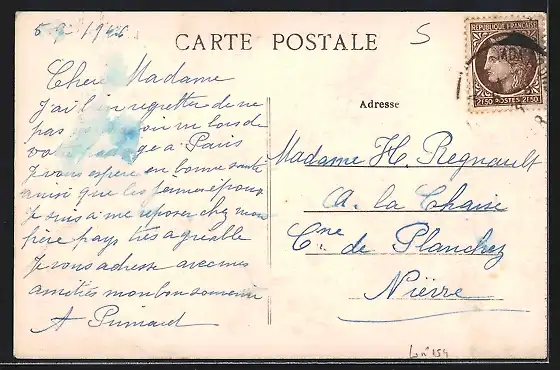 5-9-1946
CARTE POSTALE
S
REPUBLIQUE FRANÇAISE
2f50 POSTES 2f50
Adresse
Chère Madame
j'ai bien regretter de ne
pas voir lors de
votre à Paris
Je vous espère en bonne santé
ainsi que les jeunes époux
Je suis à me reposer chez mon
père pays très agréable
Je vous adresse avec mes
amitiés mon bon souvenir
A
Madame H. Regnault
A. la Chaise
Cne de Planchez
Nièvre